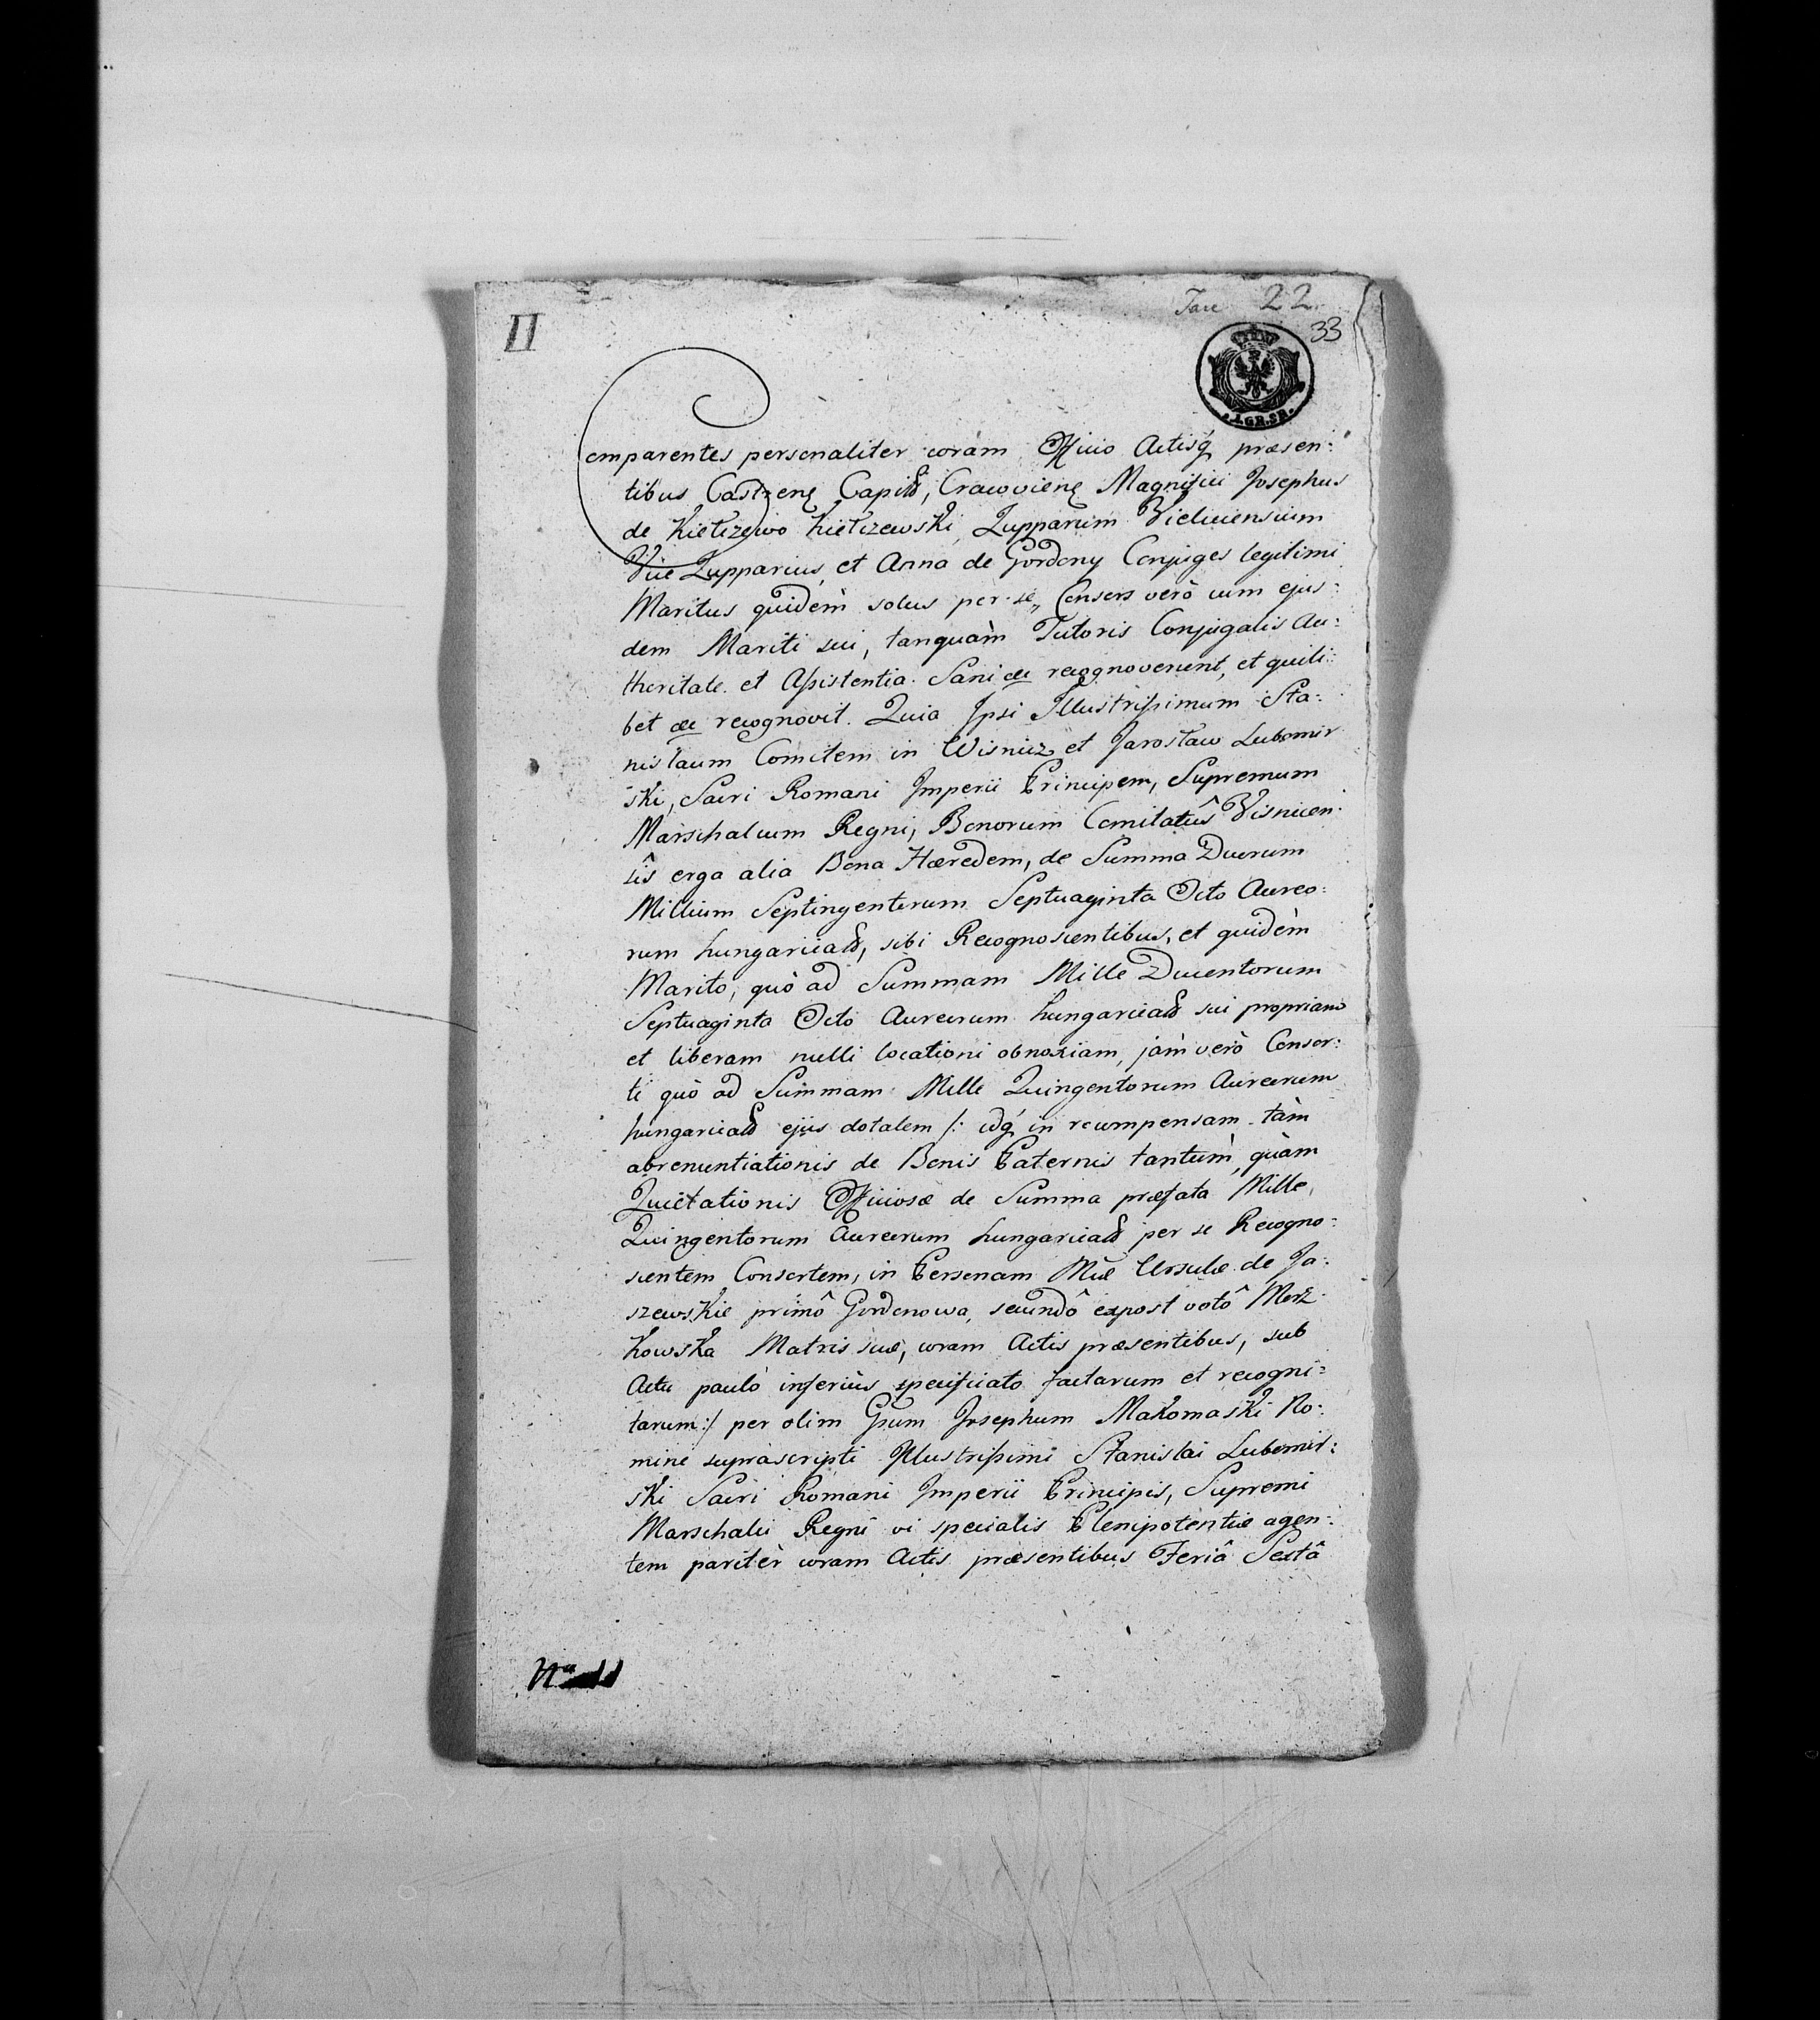 II
22
33
.1.GR.SR.
Comparentes personaliter coràm Officio Actisq́ præsen:
tibus Castren͠ Capitâl, Cracovien͠ Magnifici Josephus
de Kiełczewo Kiełczewski, Zupparum Vieliciensium
Vice Zupparius, et Anna de Gordony Conjuges legitimi
Maritus quidèm solus per se, Consors verò cum ejus:
dem Mariti sui, tanquàm Tutoris Conjugalis Au:
thoritate et Assistentia. Sani etc recognoverunt, et quili:
bet etc recognovit. Quia Ipsi Illustrissimum Sta:
nislaum Comitem in Wisnicz et Jarosław Lubomir
ski, Sacri Romani Imperii Principem, Supremum
Marschalcum Regni, Bonorum Comitatûs Visnicen:
sîs erga alia Bona Hæredem, de Summa Duorum
Millium Septingentorum Septuaginta Octo Aureo:
rum hungaricał, sibi Recognoscentibus, et quidèm
Marito, quò ad Summam Mille Ducentorum
Septuaginta Octo Aureorum hungaricał sui propriam
et liberam nulli locationi obnoxiam, jàm verò Consor:
ti quò ad Summam Mille Quingentorum Aureorum
hungaricał ejus dotalem /: idq́ in recompensam tàm
abrenuntiationis de Bonis Paternis tantùm, quàm
Quietationis Officiosæ de Summa præfata Mille
Quingentorum Aureorum hungaricał per se Recogno:
scentem Consortem, in Personam Mcæ Ursulæ de Ja:
szewskie primô Gordonowa, secundô expost votô Merz
kowska Matris suæ, coram Actis præsentibus, sub
Actu paulò inferiùs specificato factarum et recogni:
tarum:/ per olim Gsum Josephum Makomaski No:
mine suprascripti Illustrissimi Stanislai Lubomir:
ski Sacri Romani Imperii Principis, Supremi
Marschalci Regni vi specialis Plenipotentiæ agen:
tem paritèr coram Actis præsentibus Feriâ Sextâ